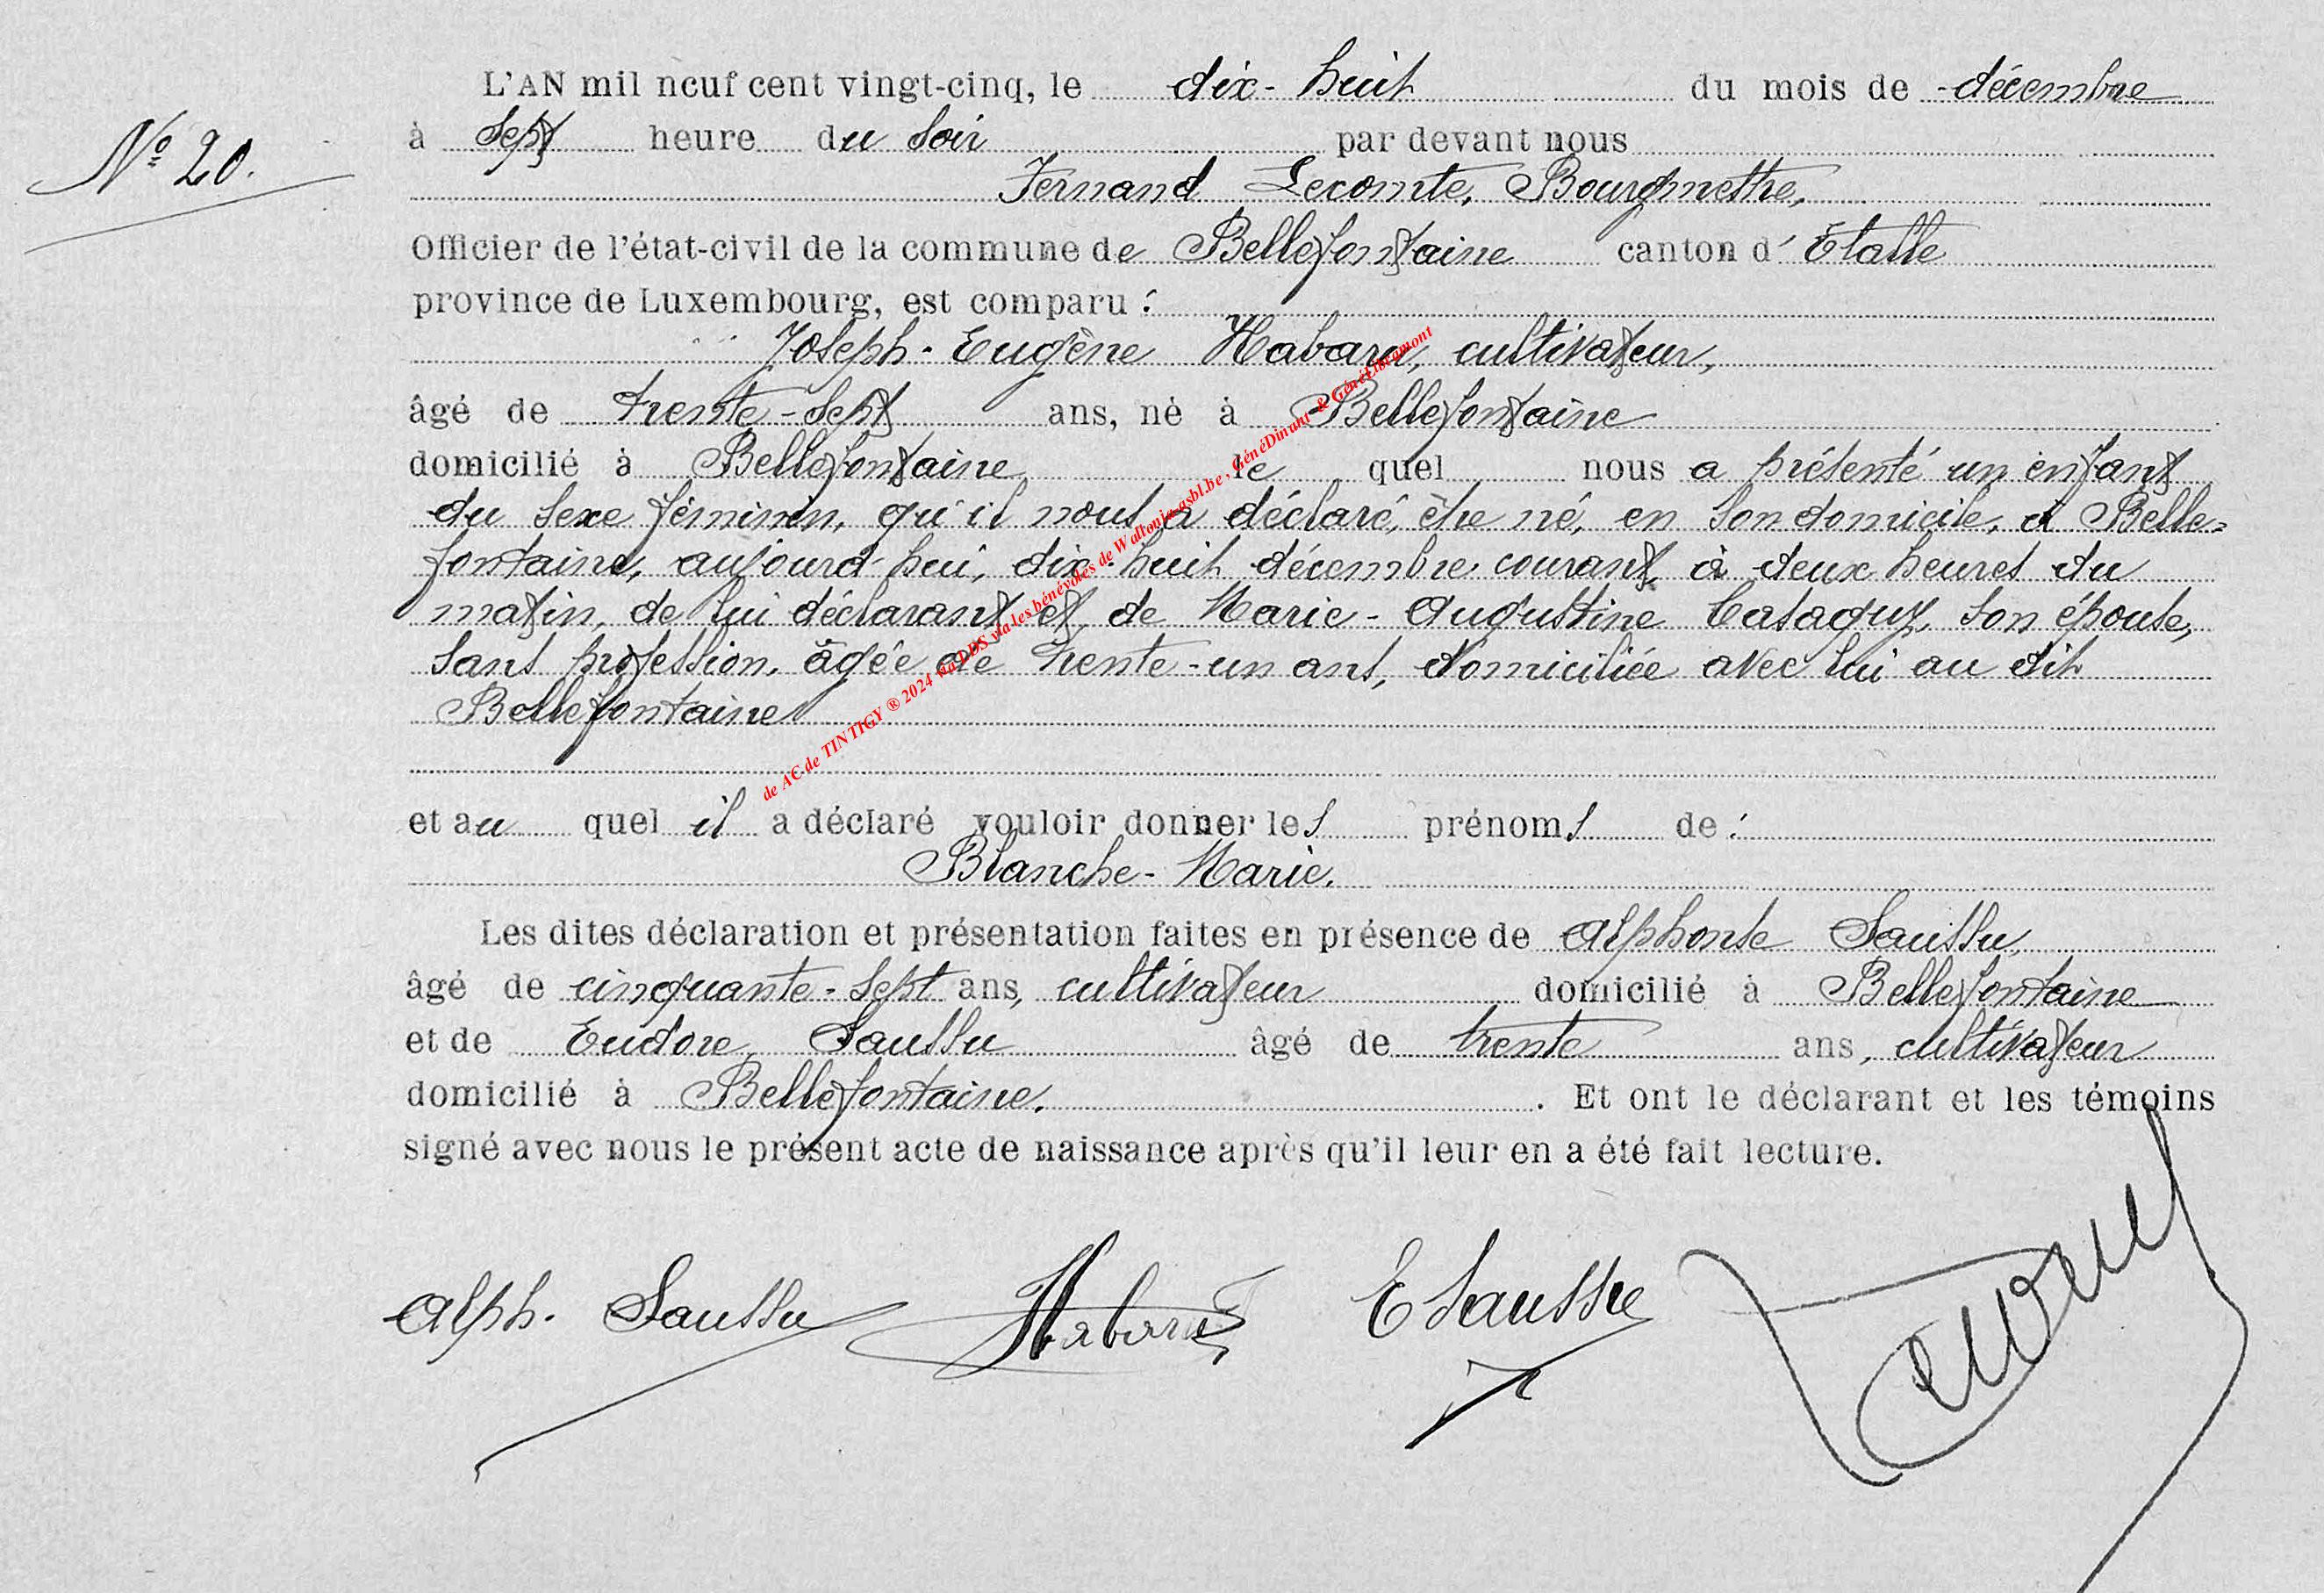 L'AN mil neuf cent vingt-cinq, le dix-huit du mois de décembre
N° 20.
à sept heure du soir par devant nous
Fernand Lecomte, Bourgmestre,
Officier de l'état-civil de la commune de Bellefontaine canton d'Etalle
province de Luxembourg, est comparu :
Joseph-Eugène Habaru, cultivateur,
âgé de trente-sept ans, né à Bellefontaine
domicilié à Bellefontaine le quel nous a présenté un enfant
du sexe féminin, qu'il nous a déclaré, être né, en son domicile, à Belle=
fontaine, aujourd'hui, dix-huit décembre courant, à deux heures du
matin, de lui déclarant et de Marie-Augustine Casaquy, son épouse,
sans profession, âgée de trente-un ans, domiciliée avec lui au dit
Bellefontaine
et au quel il a déclaré vouloir donner les prénoms de :
Blanche-Marie.
Les dites déclaration et présentation faites en présence de Alphonse Saussu,
âgé de cinquante-sept ans, cultivateur domicilié à Bellefontaine
et de Eudore Saussu âgé de trente ans, cultivateur
domicilié à Bellefontaine. . Et ont le déclarant et les témoins
signé avec nous le présent acte de naissance après qu'il leur en a été fait lecture.
Alph. Saussu Habaru E Saussu
de AC de TINTIGY ® 2024 via LDS via les bénévoles de Wallonia-asbl.be, GénéDinant & GénéLibramont